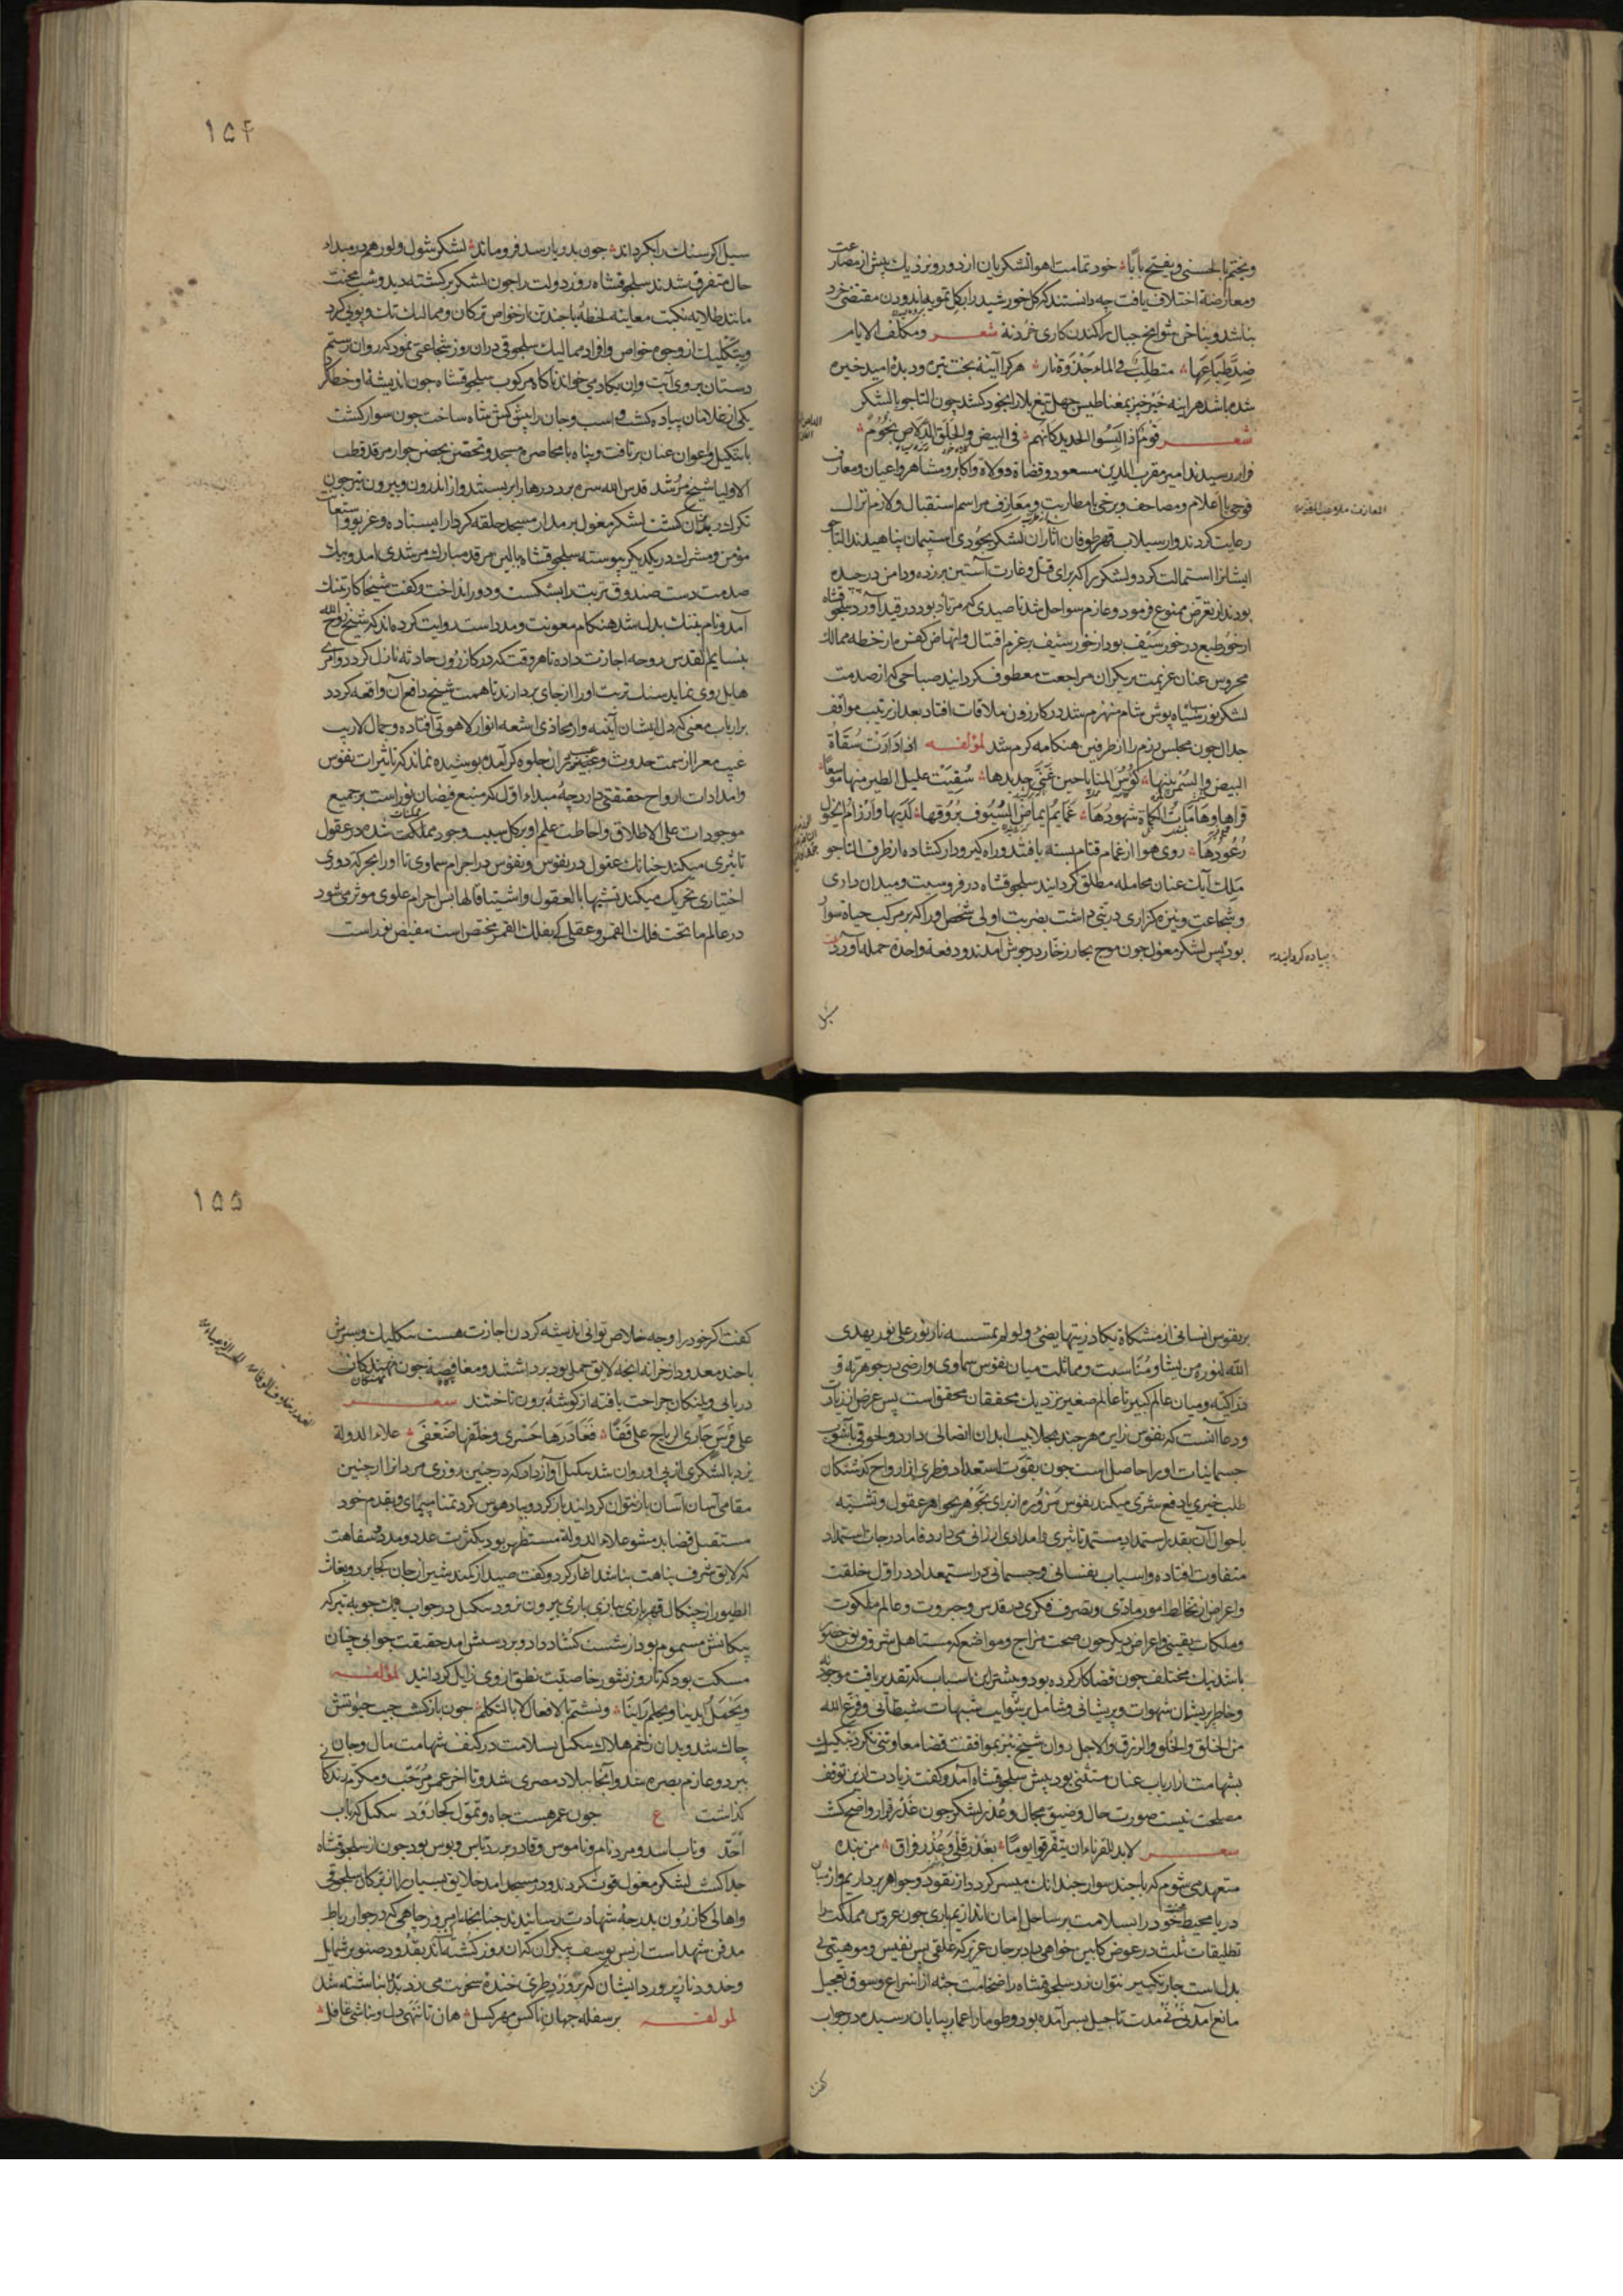 ویختم بالحسنی ویفتح بابا خود تمامت اهوا لشکریان از دور و نزدیک پیش از مصارعت
ومعارضه اختلاف یافت چه دانستند که کل خورشید را بکل تمویه اندودن مقتضی خرد
نباشد وبناخن شوامخ جبال برا کندن کاری خرد نه شعر ومکلف الایام
ضد طباعها متطلب فی الماء جذوة نار هرکرا آینه بخت تیره ودیده امید خیره
شده باشد هراینه خیر خیر بمغناطیس جهل تیغ بلا را بخود کشد چون التاجو بالشکر
شعر قوم اذا لبسوا الحدید کانهم فی البیض والحلق الدلاص نجوم
فرا رسیدند امیر مقرب الدین مسعود وقضاة و ولاة واکابر ومشاهر واعیان ومعارف
فوجی با اعلام ومصاحف وبرخی با مطاربت ومعازف مراسم استقبال ولازم نزال
رعایت کردند واز سیلاب قهر طوفان اثاران لشکر بجودی استیمان پناهیدند التاجو
ایشانرا استمالت کرد ولشکر را که برای قتل وغارت آستین برزده ودامن در چده
بودند از تعرض ممنوع فرمود وعازم سواحل شد تا صیدی که مرتاد بود در قید آورد سلجوقشاه
از خور طبع در خور سیف بود از خور شیف بر عزم اقتتال وانهاض کفن مار خطه ممالک
محروس عنان عزیمت بر یکران مراجعت معطوف کردانید صباحی که از صدمت
لشکر نور سپاه سیاه پوش شام منهزم شد در کازرون ملاقات افتاد بعد از ترتیب مواقف
جدال چون مجلس بزم را از طرفین هنکامه کرم شد لمؤلفه اذا دارت سقاة
البیض والسمر بینها کؤس المنایا حین غنی حدیدها سقیت علیل الطیر منها موسعا
قراها وهامات الکماة شهودها غمایم ایماض السیوف بروقها لدیها وارزام الخیول
رعودها روی هوا از غمام قتام بسته یافتند وراه کیر ودار کشاده از طرف التاجو
ملک آیک عنان مجامله مطلق کردانید سلجوقشاه در فروسیت ومیدان داری
وشجاعت ونیزه کزاری دستی داشت بضربت اولی شخص اورا که بر مرکب حیاة سوار
بود پس لشکر مغول چون موج بحار زخار در جوش آمدند ودفعة واحدة حمله آوردند
پیاده کردانید
سیل
۱۵۴
سیل اکر سنک را بکرداند چون بدریا رسد فرو ماند لشکر شول ولور هم در مبداء
حال متفرق شدند سلجوقشاه روز دولت را چون لشکر برکشته دید وشب محنت
مانند طلایه نکبت معاینه لحظه با چند تن از خواص ترکان وممالیک تک وپویی کرد
وبتکلیک از وجوه خواص وافراد ممالیک سلجوقی دران روز شجاعتی نمود که روان رستم
دستان بر وی آیت وان یکاد می خواند ناکاه مرکوب سلجوقشاه چون اندیشه او خطا کرد
یکی از غلامان پیاده کشت واسب وجان را پیش کش شاه ساخت چون سوار کشت
با بتکلیک واعوان عنان برتافت وپناه با محاصره مسجد وتحصن بحصن جوار مرقد قطب
الاولیا شیخ مرشد قدس الله سره برد درها را بر بستند واز اندرون وبیرون تیر چون
تکرک ریزان کشت لشکر مغول بر مدار مسجد حلقه کردار ایستاده وغریو واستغاثت
مؤمن ومشرک در یکدیکر پیوسته سلجوقشاه ببالین مرقد مبارک مرشدی آمد وبیک
صدمت دست صندوق تربت را بشکست ودور انداخت وکفت شیخا کار تنک
آمد ونام بننک بدل شد هنکام معونت ومدد است روایت کرده اند که شیخ روح الله
بنسایم القدس روحه اجازت داده تا هر وقت که در کازرون حادثه نازل کردد وامری
هایل روی نماید سنک تربت اورا از جای بردارند تا همت شیخ دافع آن واقعه کردد
بر ارباب معنی که دل ایشان آینه وار محاذی اشعه انوار لاهوتی افتاده وجمال لاریب
غیب معرا از سمت حدوث وعیب بران جلوه کر آمده پوشیده نماند که تاثیرات نفوس
وامدادات ارواح حقیقتی دارد چه مبداء اول که منبع فیضان نور است بر جمیع
موجودات علی الاطلاق واحاطت علم او بر کل سبب وجود ممکنات شده در عقول
تاثیری میکند چنانک عقول در نفوس ونفوس در اجرام سماوی تا اورا بحرکه دوری
اختیاری تحریک میکند تشبها بالعقول واشتیاقا لها پس اجرام علوی موثر می شود
در عالم ما تحت فلک القمر وعقلی که بفلک القمر مختص است مفیض نور است
بر نفوس انسانی از مشکاة یکاد زیتها یضیء ولو لم تمسسه نار نور علی نور یهدی
الله لنوره من یشا ومناسبت ومماثلت میان نفوس سماوی وارضی در جوهریة و
دراکیه ومیان عالم کبیر تا عالم صغیر نزدیک محققان محقق است پس غرض از زیارت
ودعا آنست که نفوس زایره هر چند بجلابیب ابدان اتصالی دارد ولحوقی باثواب
جسمانیات اورا حاصل است چون بقوت استعداد فطری از ارواح کذشتکان
طلب خیری یا دفع شری میکند نفوس مزوره از برای تجوهر بجواهر عقول وتشبه
باحوال آن بقدر استمداد مستمد تاثیری وامدادی ارزانی می دارد فاما درجات استمداد
متفاوت افتاده واسباب نفسانی وجسمانی در استمداد در اول خلقت
واعراض از تخالط امور مادی وتصرف فکری در قدس وجبروت وعالم ملکوت
وملکات یقینی واعراض دیکر چون صحت مزاج ومواضع که مستاهل شرق ونور حضور
باشد نیک مختلف چون قضا کار کرده بود وبیشتر این اسباب که تقدیر یافت موجود نه
وخاطر پریشان شهوات وپریشانی وشامل بر شوایب شبهات شیطانی وفرغ الله
من الخلق والخلق والرزق والاجل روان شیخ نیز بموافقت قضا معاونتی نکرد بتکلیک
بشهامت از ارباب عنان مستثنی بود پیش سلجوقشاه آمد وکفت زیادت ازین توقف
مصلحت نیست صورت حال وضیق مجال وعذر لشکر چون غدر قرار واضح کشت
شعر لابد للقرناء ان یتفرقوا یوما بغدر قلی وعذر فراق من بنده
متعهد می شوم که با چند سوار چندانک میسر کردد از نقود وجواهر برداریم واز میان
دریا محیط خود را بسلامت بر ساحل امان اندازیم باری چون عروس مملکت را
تطلیقات ثلث در عوض کابین خواهی داد بر جان عزیز که علقی بس نفیس وموهبتی بی
بدل است چار تکبیر نتوان زد سلجوقشاه را ضخامت جثه از اسراع وسوق تعجیل
مانع آمد نی نی مدت تاجیل بسر آمده بود وطومار اعمار بپایان رسیده در جواب
کفت
۱۵۵
کفت اکر خود را وجه خلاص توانی اندیشه کردن اجازت هست بتکلیک وبسرش
با چند معدود از خزانه آنچه لایق حمل بود برداشتند ومغافصة چون نهنکان
دریائی وپلنکان جراحت یافته از کوشه برون تاختند شعر
علی فرس جاری الریاح علی قفا فغادرها حسری وخلفها ضعفی علاء الدولة
یزد با لشکری از پی او روان شد بتکلیک آواز داد که در چنین روزی مردانرا از چنین
مقامی آسان آسان باز نتوان کردانید باز کرد وبیاد هوس کرد تمنا مپیمای وبقدم خود
مستقبل قضا بد مشو علاء الدولة مستظهر بود بکثرت عدد ومدد وسفاهت
که لایق شرف نباهت نباشد آغاز کرد وکفت صید از کمند شیران جان کجا برد وبغاث
الطیور از چنکال قهر بازی ببازی بازی بیرون نرود بتکلیک در جواب یک چوبه تیر که
پیکانش مسموم بود از شست کشاد داد وبر دستش آمد حقیقت جوابی چنان
مسکت بود که تا روز نشور خاصیت نطق از وی زایل کردانید لمؤلفه
ویجهل ایدینا ویحلم راینا ونشتم بالافعال لا بالتکلم چون بازکشت جیب حیوتش
چاک شد وبدان زخم هلاک بتکلیک بسلامت در کنف شهامت مال وجان
ببرد وعازم بصره شد واز آنجا ببلاد مصری شد وتا آخر عمر مرحب ومکرم زندکانی
کذاشت ع چون عمر هست جاه وتمول کجا رود بتکلیک که ارباب
وناب باسد ومرد نام وناموس وقادر بر ردباس وبوس بود چون از سلجوقشاه
جدا کشت لشکر مغول قوت کردند ودر مسجد آمد خلایق بسیار را از ترکان سلجوقی
واهالی کازرون بدرجه شهادت رسانیدند چنانکه امروز چاهی که در جوار رباط
مدفن شهداست از بس یوسف پیکران که آن روز کشته اند بقدود صنوبر شمایل
وخدود ناز پرورد ایشان که بر ورد طری خنده سخریت می زد انباشته شد
لمؤلفه بر سفله جهان ناکس مهر کسل هان تا ننهی دل ونباشی غافل